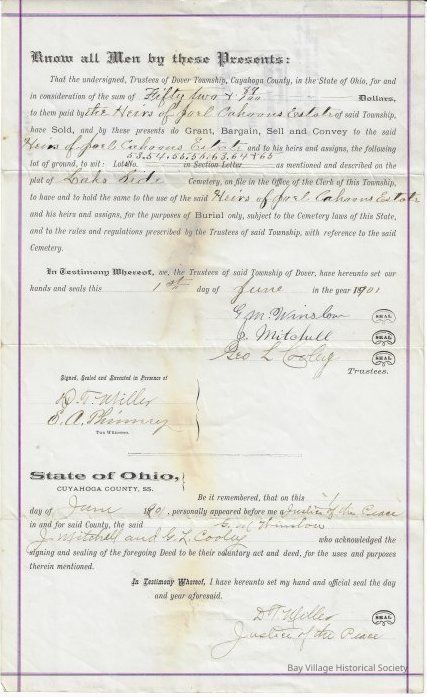 Know all Men by these Presents:
That the undersigned, Trustees of Dover Township, Cuyahoga County, in the State of Ohio, for and
in consideration of the sum of Fifty two & /100 Dollars,
to them paid by the Heirs of Joel Cahoons Estate of said Township,
have Sold, and by these presents do Grant, Bargain, Sell and Convey to the said
Heirs of Joel Cahoons Estate and to his heirs and assigns, the following
lot of ground, to wit: Lot No. 53, 54, 55, 56, 63, 64 & 65 in Section Letter as mentioned and described on the
plat of Lake Side Cemetery, on file in the Office of the Clerk of this Township,
to have and to hold the same to the use of the said Heirs of Joel Cahoons Estate
and his heirs and assigns, for the purposes of Burial only, subject to the Cemetery laws of this State,
and to the rules and regulations prescribed by the Trustees of said Township, with reference to the said
Cemetery.
In Testimony Whereof, we, the Trustees of said Township of Dover, have hereunto set our
hands and seals this 1st day of June in the year 1901
G. M. Winslow SEAL
J. Mitchell SEAL
Geo L Cooley SEAL
Trustees.
Signed, Sealed and Executed in Presence of
D. T. Miller
E. A. Phinney
Two Witnesses.
State of Ohio,
CUYAHOGA COUNTY, SS.
Be it remembered, that on this 1
day of June 1901, personally appeared before me a Justice of the Peace
in and for said County, the said G. M. Winslow
J. Mitchell and G. L. Cooley who acknowledged the
signing and sealing of the foregoing Deed to be their voluntary act and deed, for the uses and purposes
therein mentioned.
In Testimony Whereof, I have hereunto set my hand and official seal the day
and year aforesaid.
D. T. Miller SEAL
Justice of the Peace
Bay Village Historical Society